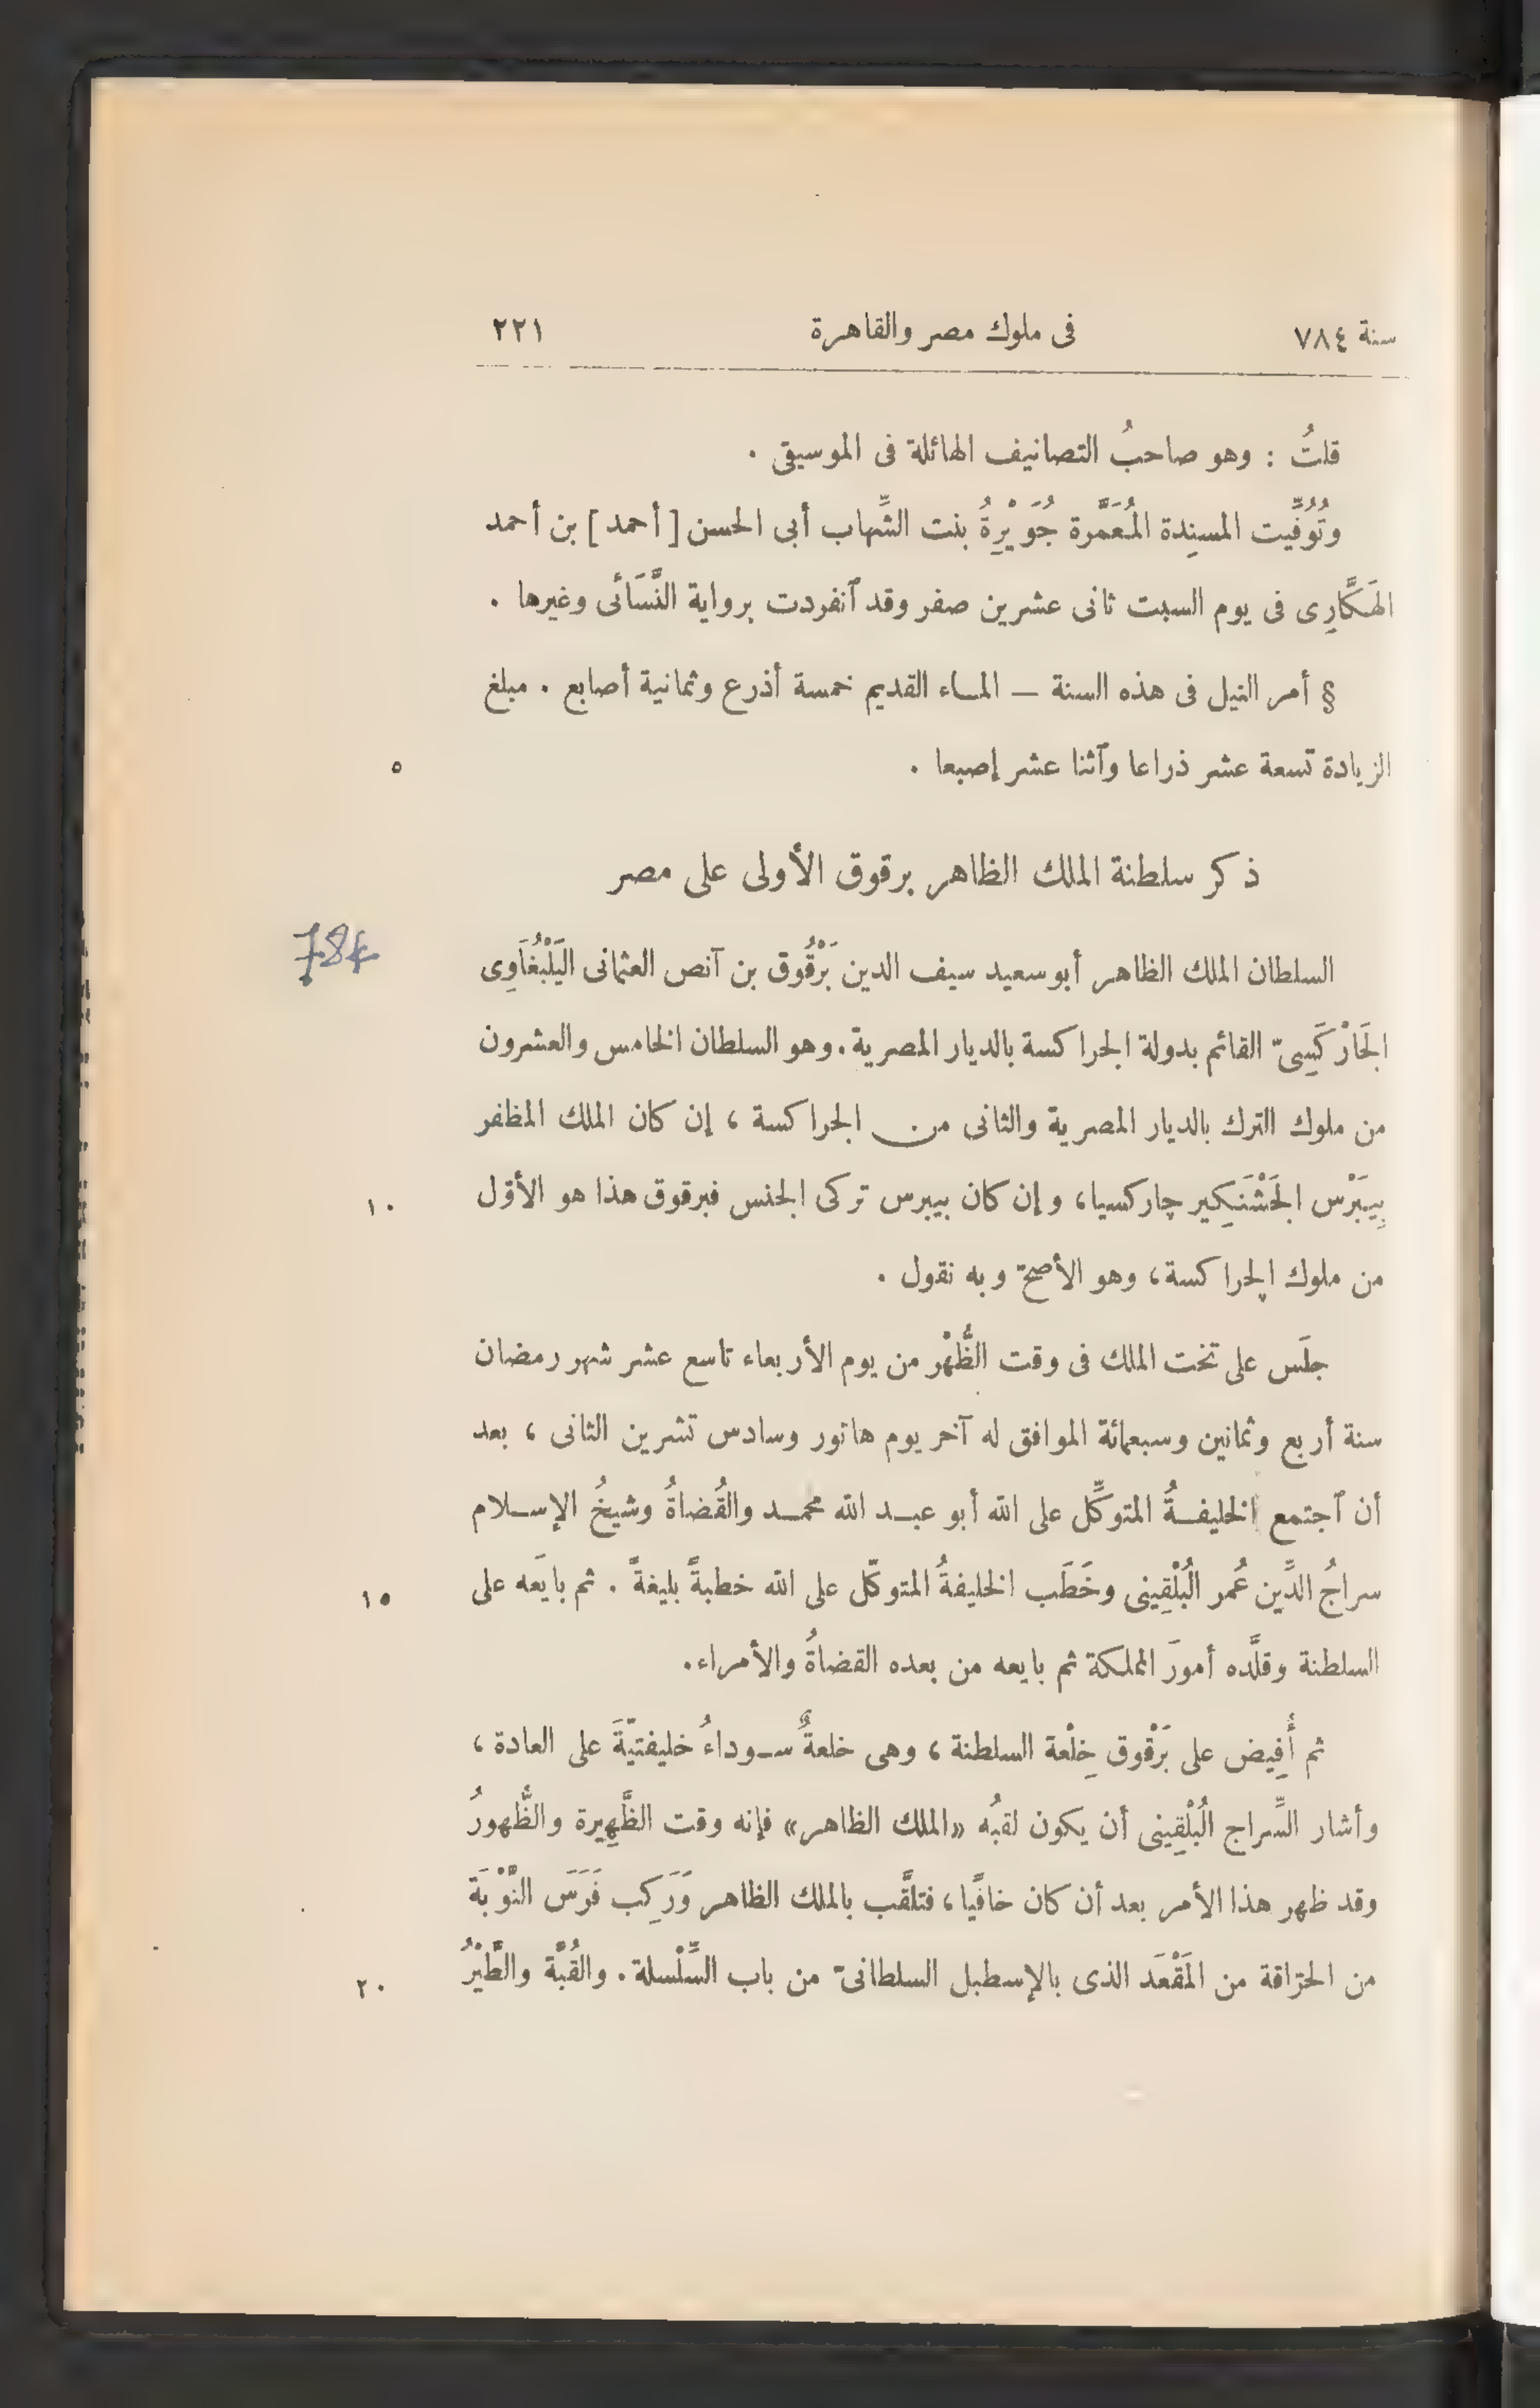 سنة ٧٨٤ فى ملوك مصر والقاهرة ٢٢١
قلتُ : وهو صاحبُ التصانيف الهائلة فى الموسيقى .
وتُوُفِّيت المسنِدة المُعَمَّرة جُوَيْرِةُ بنت الشِّهاب أبى الحسن [أحمد] بن أحمد
الهَكَّارِى فى يوم السبت ثانى عشرين صفر وقد آنفردت برواية النَّسَائى وغيرها .
§ أمر النيل فى هذه السنة — الماء القديم خمسة أذرع وثمانية أصابع . مبلغ
الزيادة تسعة عشر ذراعا وآثنا عشر إصبعا . ٥
ذكر سلطنة الملك الظاهر برقوق الأولى على مصر
784
السلطان الملك الظاهر أبو سعيد سيف الدين بَرْقُوق بن آنص العثمانى اليَلْبُغَاوِى
الجَارْكَسِىّ القائم بدولة الجراكسة بالديار المصرية. وهو السلطان الخامس والعشرون
من ملوك الترك بالديار المصرية والثانى من الجراكسة ، إن كان الملك المظفر
بِيبَرْس الجَشْنَكِير چاركسيا، وإن كان بيبرس تركى الجنس فبرقوق هذا هو الأوّل ١٠
من ملوك الچراكسة، وهو الأصحّ وبه نقول .
جلَس على تخت الملك فى وقت الظُّهْر من يوم الأربعاء تاسع عشر شهر رمضان
سنة أربع وثمانين وسبعمائة الموافق له آخر يوم هاتور وسادس تشرين الثانى ، بعد
أن آجتمع الخليفةُ المتوكِّل على الله أبو عبد الله محمد والقُضاةُ وشيخُ الإسلام
سراجُ الدِّين عُمر البُلْقِينى وخَطَب الخليفةُ المتوكّل على الله خطبةً بليغةً . ثم بايَعه على ١٥
السلطنة وقلَّده أمورَ المملكة ثم بايعه من بعده القضاةُ والأمراء.
ثم أُفِيض على بَرْقوق خِلْعة السلطنة ، وهى خلعةٌ سوداءُ خليفتيّةَ على العادة ،
وأشار السِّراج البُلْقِينى أن يكون لقبُه «الملك الظاهر» فإنه وقت الظَّهِيرة والظُّهورُ
وقد ظهر هذا الأمر بعد أن كان خافيًا، فتلقَّب بالملك الظاهر وَرَكِب فَرَسَ النَّوْبَة
من الحرّاقة من المَقْعَد الذى بالإسطبل السلطانىّ من باب السِّلْسلة. والقُبَّة والطَّيْرُ ٢٠